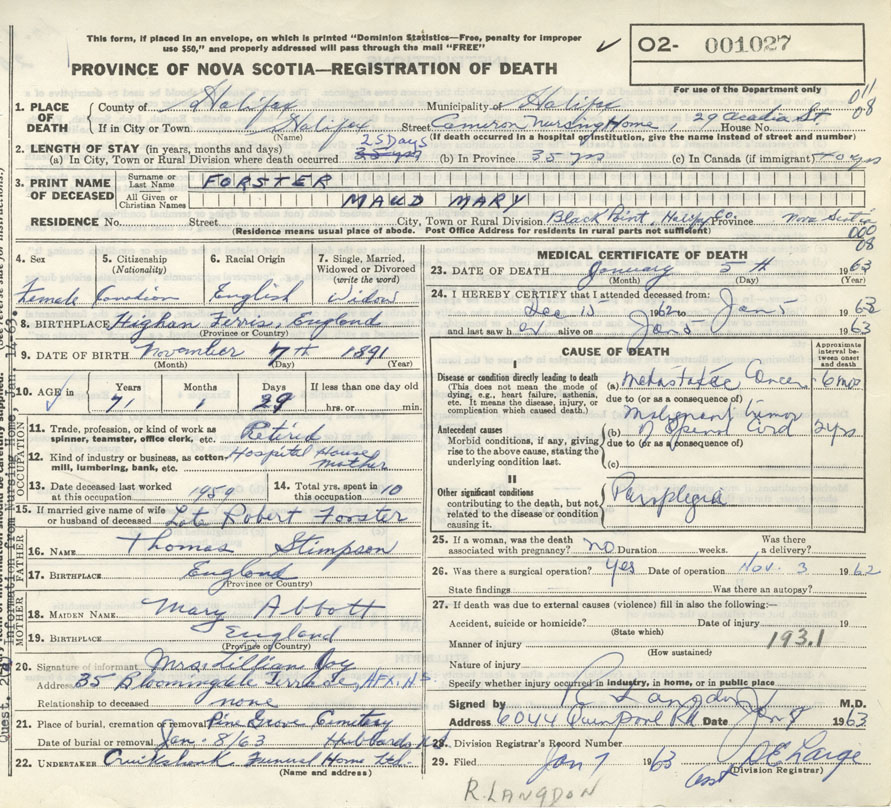 This form, if placed in an envelope, on which is printed "Dominion Statistics—Free, penalty for improper
use $50," and properly addressed will pass through the mail "FREE"
✓ O2- 001027
PROVINCE OF NOVA SCOTIA—REGISTRATION OF DEATH
For use of the Department only
011
08
1. PLACE OF DEATH
County of Halifax Municipality of Halifax
If in City or Town Halifax Street Cameron Nursing Home, 29 Acadia St House No.
(Name) (If death occurred in a hospital or institution, give the name instead of street and number)
2. LENGTH OF STAY (in years, months and days)
25 Days
(a) In City, Town or Rural Division where death occurred 35 yrs (b) In Province 35 yrs (c) In Canada (if immigrant) 40 yrs
3. PRINT NAME OF DECEASED
Surname or Last Name FORSTER
All Given or Christian Names MAUD MARY
RESIDENCE No. Street City, Town or Rural Division Black Point, Halifax Co. Province Nova Scotia
(Residence means usual place of abode. Post Office Address for residents in rural parts not sufficient)
000
08
4. Sex 5. Citizenship (Nationality) 6. Racial Origin 7. Single, Married, Widowed or Divorced (write the word)
Female Canadian English Widow
8. BIRTHPLACE Highan Ferris, England
(Province or Country)
9. DATE OF BIRTH November 7th 1891
(Month) (Day) (Year)
10. AGE in Years Months Days If less than one day old
✓ 71 1 29 hrs. or min.
OCCUPATION
11. Trade, profession, or kind of work as spinner, teamster, office clerk, etc. Retired
12. Kind of industry or business, as cotton mill, lumbering, bank, etc. Hospital House mother
13. Date deceased last worked at this occupation 1959 14. Total yrs. spent in this occupation 10
15. If married give name of wife or husband of deceased Late Robert Forster
FATHER
16. NAME Thomas Stimpson
17. BIRTHPLACE England
(Province or Country)
MOTHER
18. MAIDEN NAME Mary Abbott
19. BIRTHPLACE England
(Province or Country)
20. Signature of informant Mrs. Lillian Joy
Address 35 Bloomingdale Terrace, HFX, NS
Relationship to deceased none
21. Place of burial, cremation or removal Pine Grove Cemetery
Date of burial or removal Jan. 8/63 Hubbards NS
22. UNDERTAKER Cruikshank Funeral Home Ltd.
(Name and address)
MEDICAL CERTIFICATE OF DEATH
23. DATE OF DEATH January 5th 1963
(Month) (Day) (Year)
24. I HEREBY CERTIFY that I attended deceased from:
Dec 15 1962 to Jan 5 1963
and last saw her alive on Jan 5 1963
CAUSE OF DEATH
Approximate interval between onset and death
I
Disease or condition directly leading to death
(This does not mean the mode of dying, e.g., heart failure, asthenia, etc. It means the disease, injury, or complication which caused death.)
(a) Metastatic Cancer 6 mos
due to (or as a consequence of)
Antecedent causes
Morbid conditions, if any, giving rise to the above cause, stating the underlying condition last.
Malignant tumor
(b) of Spinal Cord 2 yrs
due to (or as a consequence of)
(c)
II
Other significant conditions
contributing to the death, but not related to the disease or condition causing it.
Paraplegia
25. If a woman, was the death associated with pregnancy? no Duration weeks. Was there a delivery?
26. Was there a surgical operation? yes Date of operation Nov. 3 1962
State findings Was there an autopsy?
27. If death was due to external causes (violence) fill in also the following:—
Accident, suicide or homicide? Date of injury 19
(State which)
Manner of injury 193.1
(How sustained)
Nature of injury
Specify whether injury occurred in industry, in home, or in public place
Signed by R Langdon M.D.
Address 6044 Quinpool Rd Date Jan 8 1963
28. Division Registrar's Record Number
29. Filed Jan 7 1963
Asst (Division Registrar)
R. LANGDON